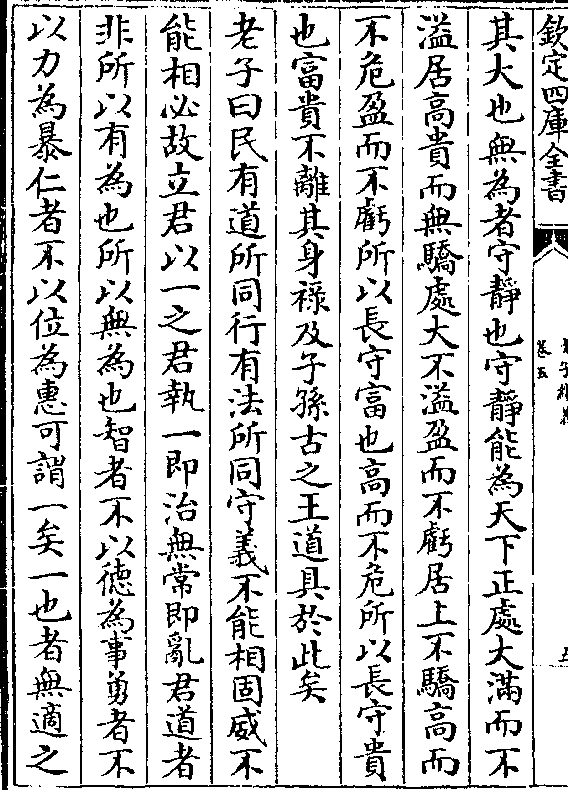 欽定四庫全書
卷五
其大也無為者守靜也守靜能為天下正處大滿而不
溢居高貴而無驕處大不溢盈而不虧居上不驕高而
不危盈而不虧所以長守富也高而不危所以長守貴
也富貴不離其身祿及子孫古之王道具於此矣
老子曰民有道所同行有法所同守義不能相固威不
能相必故立君以一之君執一即治無常即亂君道者
非所以有為也所以無為也智者不以徳為事勇者不
以力為暴仁者不以位為惠可謂一矣一也者無適之